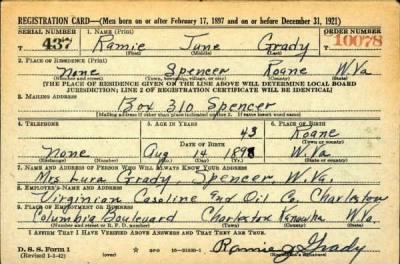 REGISTRATION CARD—(Men born on or after February 17, 1897 and on or before December 31, 1921)
SERIAL NUMBER 1. NAME (Print) ORDER NUMBER
T 437 Ramie June Grady 10078
(First) (Middle) (Last)
2. PLACE OF RESIDENCE (Print)
None Spencer Roane W.Va
(Number and street) (Town, township, village, or city) (County) (State)
[THE PLACE OF RESIDENCE GIVEN ON THE LINE ABOVE WILL DETERMINE LOCAL BOARD
JURISDICTION; LINE 2 OF REGISTRATION CERTIFICATE WILL BE IDENTICAL]
3. MAILING ADDRESS
Box 310 Spencer
[Mailing address if other than place indicated on line 2. If same insert word same]
4. TELEPHONE 5. AGE IN YEARS 6. PLACE OF BIRTH
43 Roane
DATE OF BIRTH (Town or county)
None Aug 14 1898 W.Va
(Exchange) (Number) (Mo.) (Day) (Yr.) (State or country)
7. NAME AND ADDRESS OF PERSON WHO WILL ALWAYS KNOW YOUR ADDRESS
Mrs Lura Grady, Spencer, W.Va.
8. EMPLOYER'S NAME AND ADDRESS
Virginian Gasoline and Oil Co, Charleston
9. PLACE OF EMPLOYMENT OR BUSINESS
Columbia Boulevard Charleston Kanawha W.Va.
(Number and street or R. F. D. number) (Town) (County) (State)
I AFFIRM THAT I HAVE VERIFIED ABOVE ANSWERS AND THAT THEY ARE TRUE.
D. S. S. Form 1 GPO
(Revised 1-1-42) Ramie J Grady
(Registrant's signature)